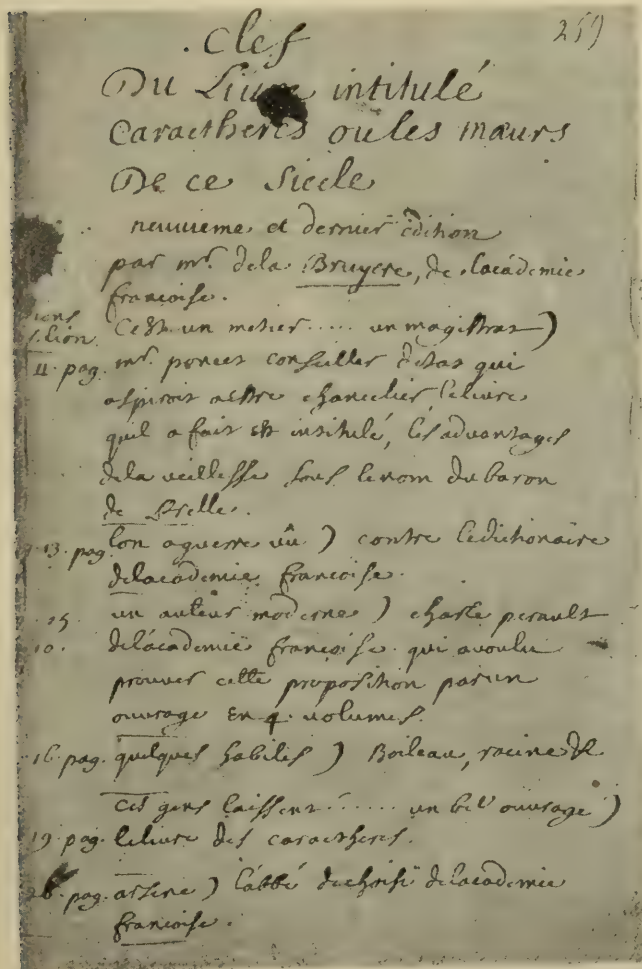 259
Clef
Du Liure intitulé
Caractheres ou les mœurs
De ce Siecle
neuuieme et dernier édition
par mr. dela Bruyere, de lacádemie
francoise.
Cest un metier ..... un magistrat)
11. pag. mr. poncet conseiller destat qui
aspiroit a estre chancelier, le liure
quil a fait est intitulé, les advantages
dela vieillesse sous le nom du baron
de Prelle.
13. pag. lon a guerre vû ) contre le dichonaire
delacademie francoise.
15 un auteur moderne ) charle perault
10. delácademie francoise qui a voulu
prouver cette proposition par un
ouvrage en 4. volumes.
16. pag. quelques habiles ) Boileau, racine &
ces gens laissent ...... un bel ouvrage )
19. pag. le liure des caractheres.
pag. arsene ) l'abbé de choisi delacademie
francoise.